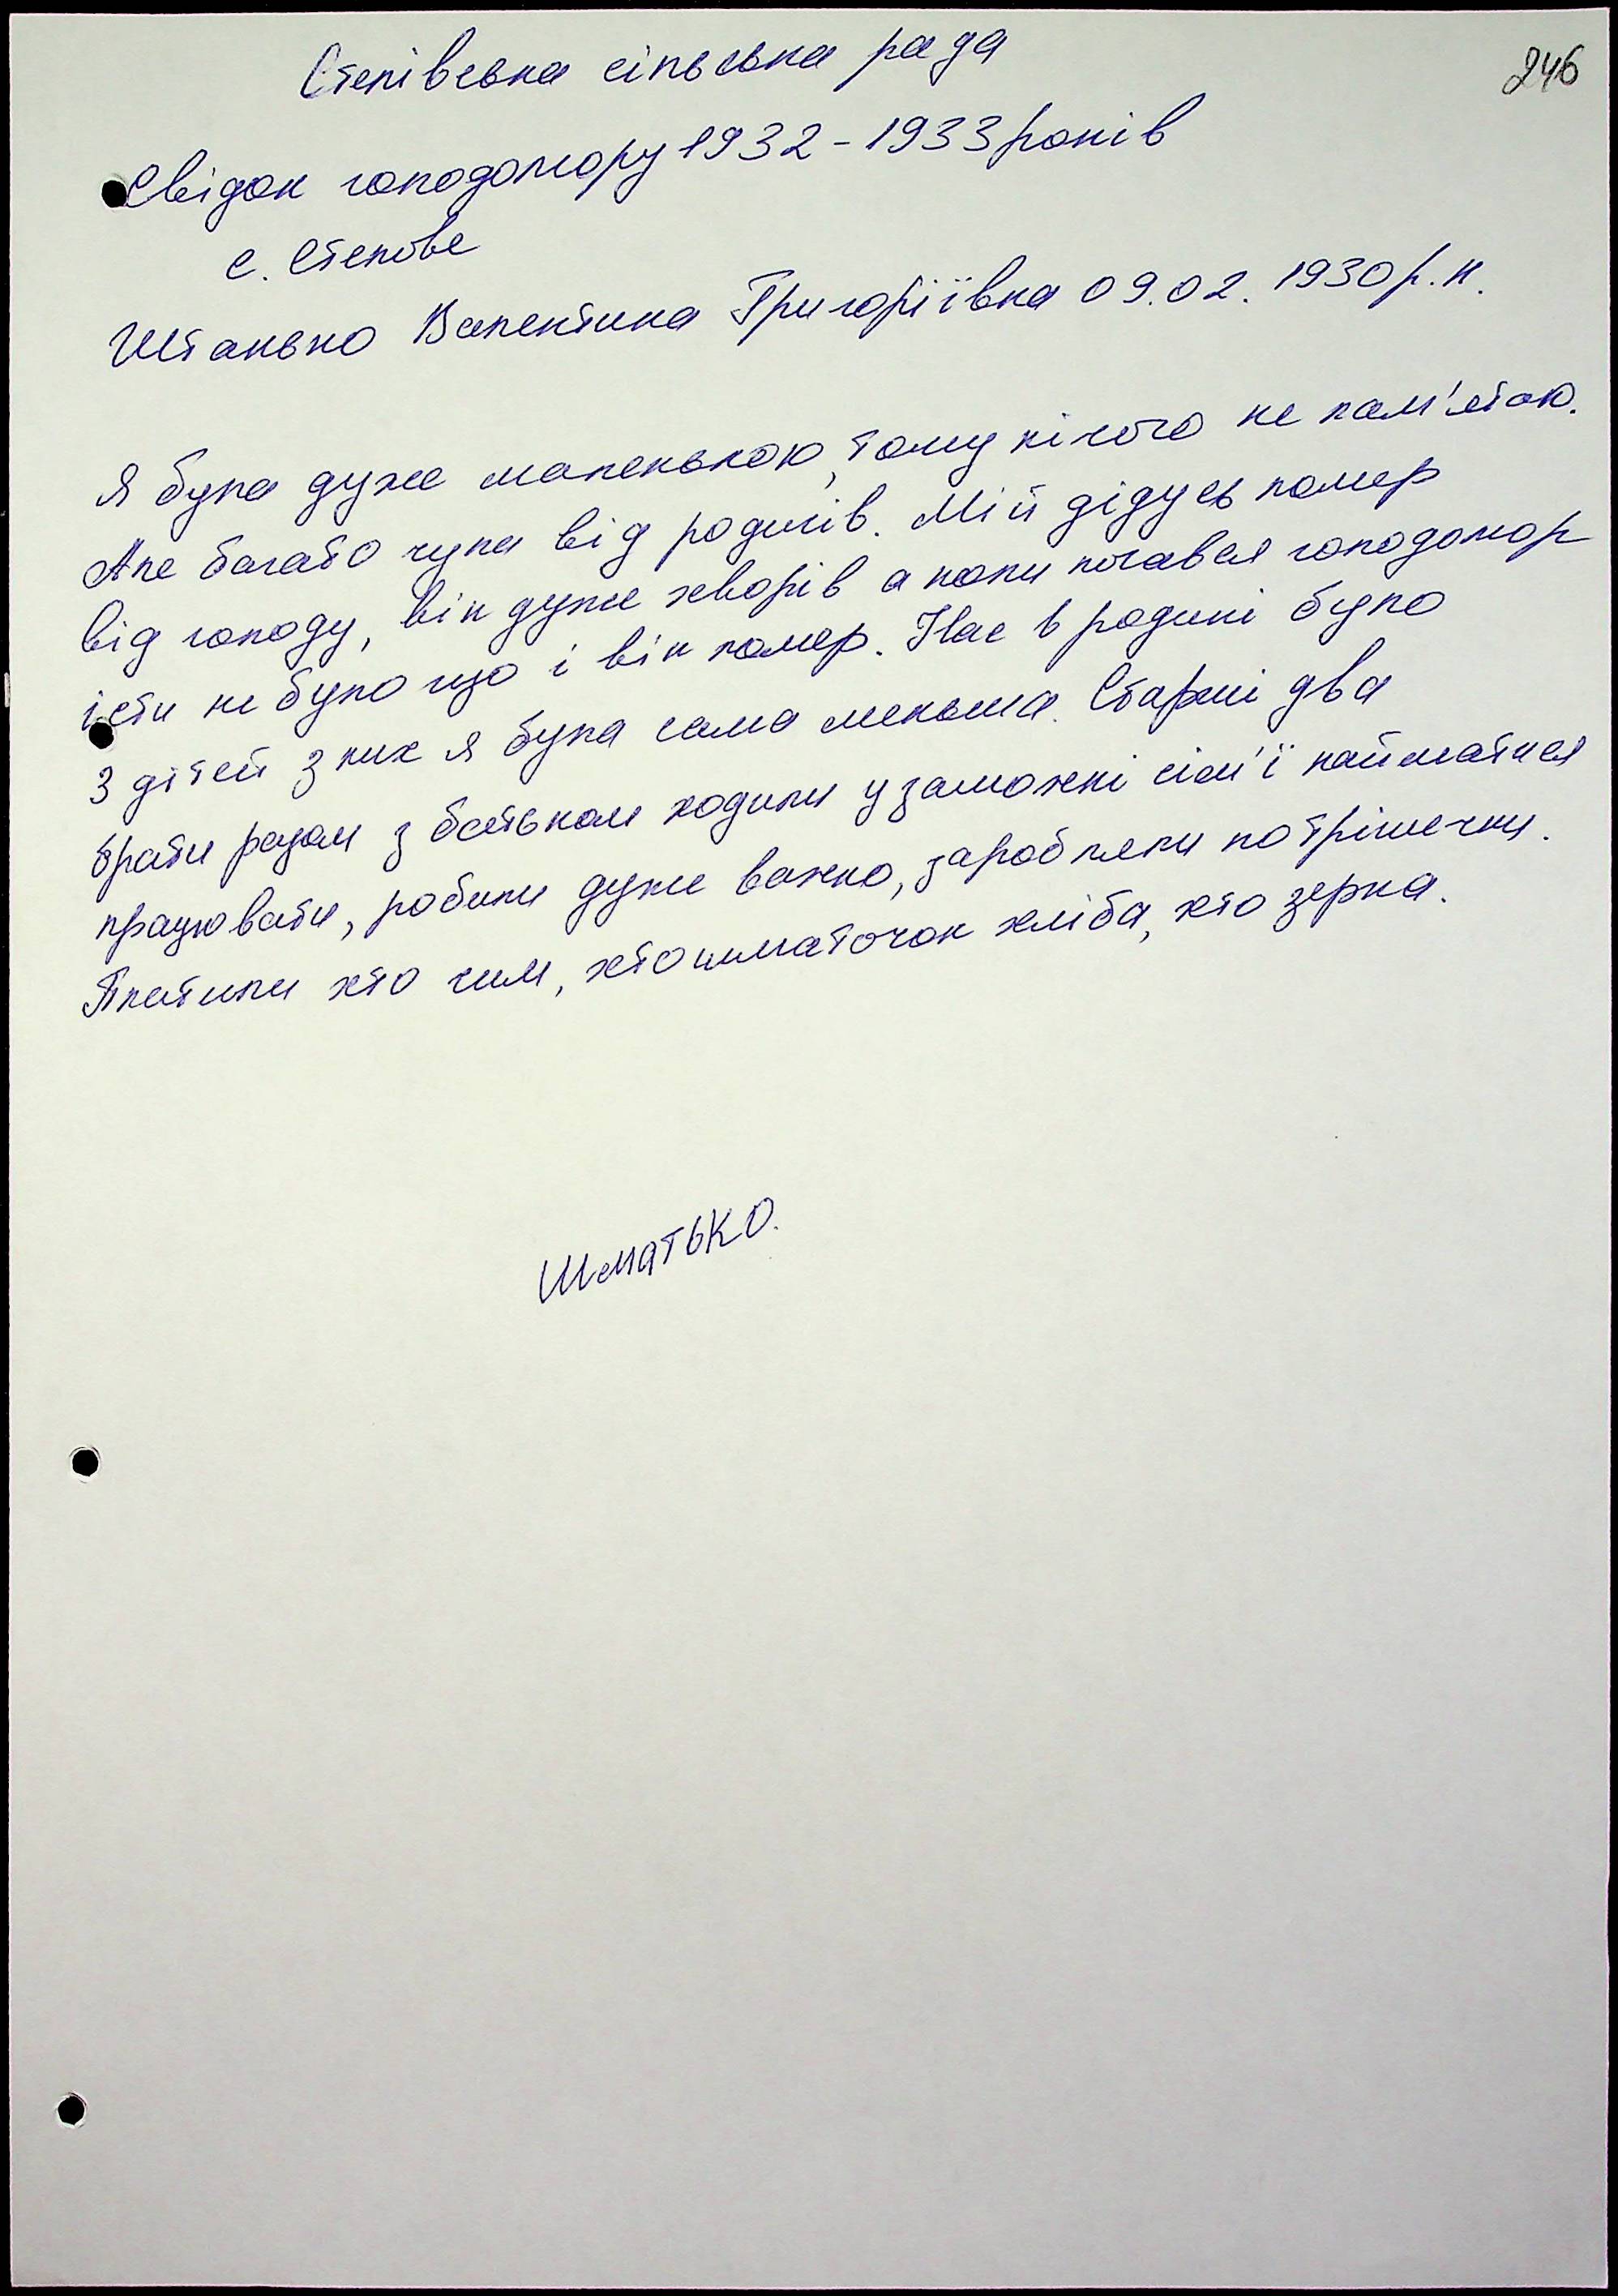 Степівська сільська рада
246
Свідок голодомору 1932-1933 років
с. Степове
Штанько Валентина Григоріївна 09.02.1930 р.н.
Я була дуже маленькою, тому нічого не пам'ятаю.
Але багато чула від родичів. Мій дідусь помер
від голоду, він дуже хворів а коли почався голодомор
їсти не було що і він помер. Нас в родині було
3 дітей з них я була сама меньша. Старші два
брати разом з батьком ходили у заможні сім'ї найматися
працювати, робили дуже важко, заробляли по трішечки.
Платили хто чим, хто шматочок хліба, хто зерна.
Шматько.